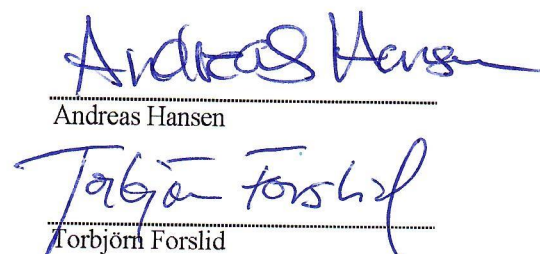 Andreas Hansen
Andreas Hansen
Torbjörn Forslid
Torbjörn Forslid